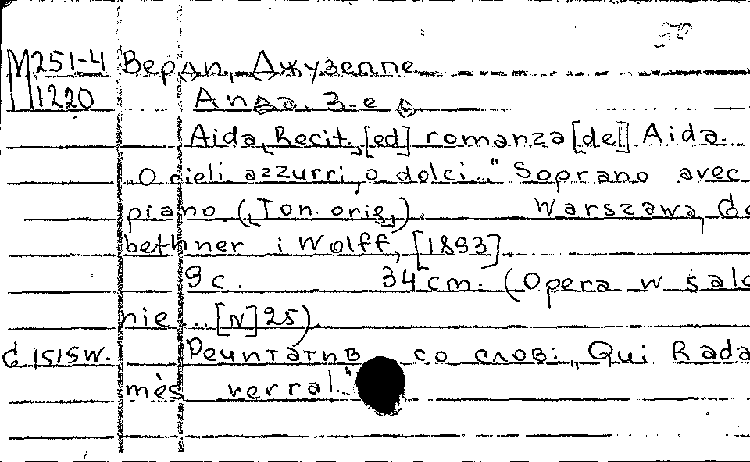 50
М251-4 Верди, Джузеппе
1220 Аида. З-е
Aida, Recit. [ed] romanza [de] Aida.
„O cieli azzurri, o dolci.." Soprano avec
piano („Ton. orig.). Warszawa, Ge
bethner i Wolff, [1893].
9 c. 34 cm. (Opera w salo
nie... [N] 25)
Речитатив со слов: „Qui Rada
mès verra!.."